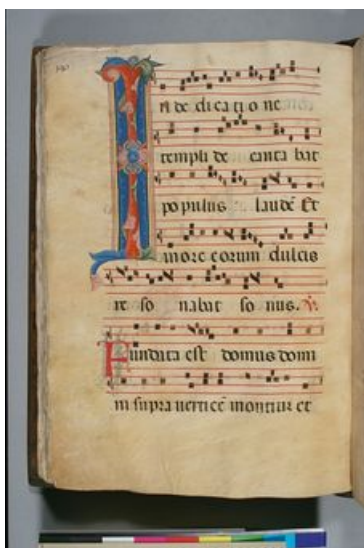 In de di ca ti o ne
templi de canta bat
populus laudē Et
in ore eorum dulcis
re so nabat so nus. ℣.
Fundata est domus domi
ni supra verticē montiuꝫ et